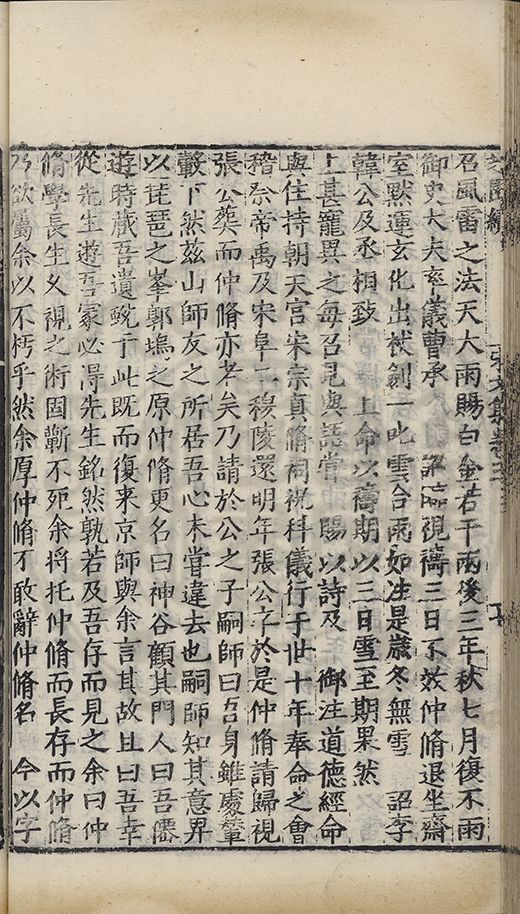 召風雷之法天大雨賜白金若干兩後三年秋七月復不雨
御史大夫率儀曹承 臨視禱三日不效仲脩退坐齋
室默運玄化出杖劍一叱雲合雨如注是歲冬無雪 詔李
韓公及丞相致 且命以禱期以三日雪至期果然
上甚寵異之每召見與語嘗 賜以詩及 御注道德經命
與住持朝天宮宋宗真脩祠祝科儀行于世十年奉命之會
稽祭帝禹及宋阜二穆陵還明年張公卒於是仲脩請歸視
張公葬而仲脩亦老矣乃請於公之子嗣師曰吾身雖處輦
轂下然茲山師友之所居吾心未嘗違去也嗣師知其意畀
以琵琶之峯郭塢之原仲脩更名曰神谷顧其門人曰吾僊
遊時藏吾遺蛻于此既而復来京師與余言其故且曰吾幸
從先生遊吾冢必淂先生銘然孰若及吾存而見之余曰仲
脩學長生久視之術固蘄不死余将托仲脩而長存而仲脩
乃欲屬余以不朽乎然余厚仲脩不敢辭仲脩名 今以字